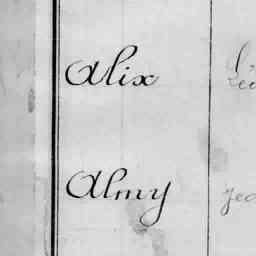 Alix
Almy